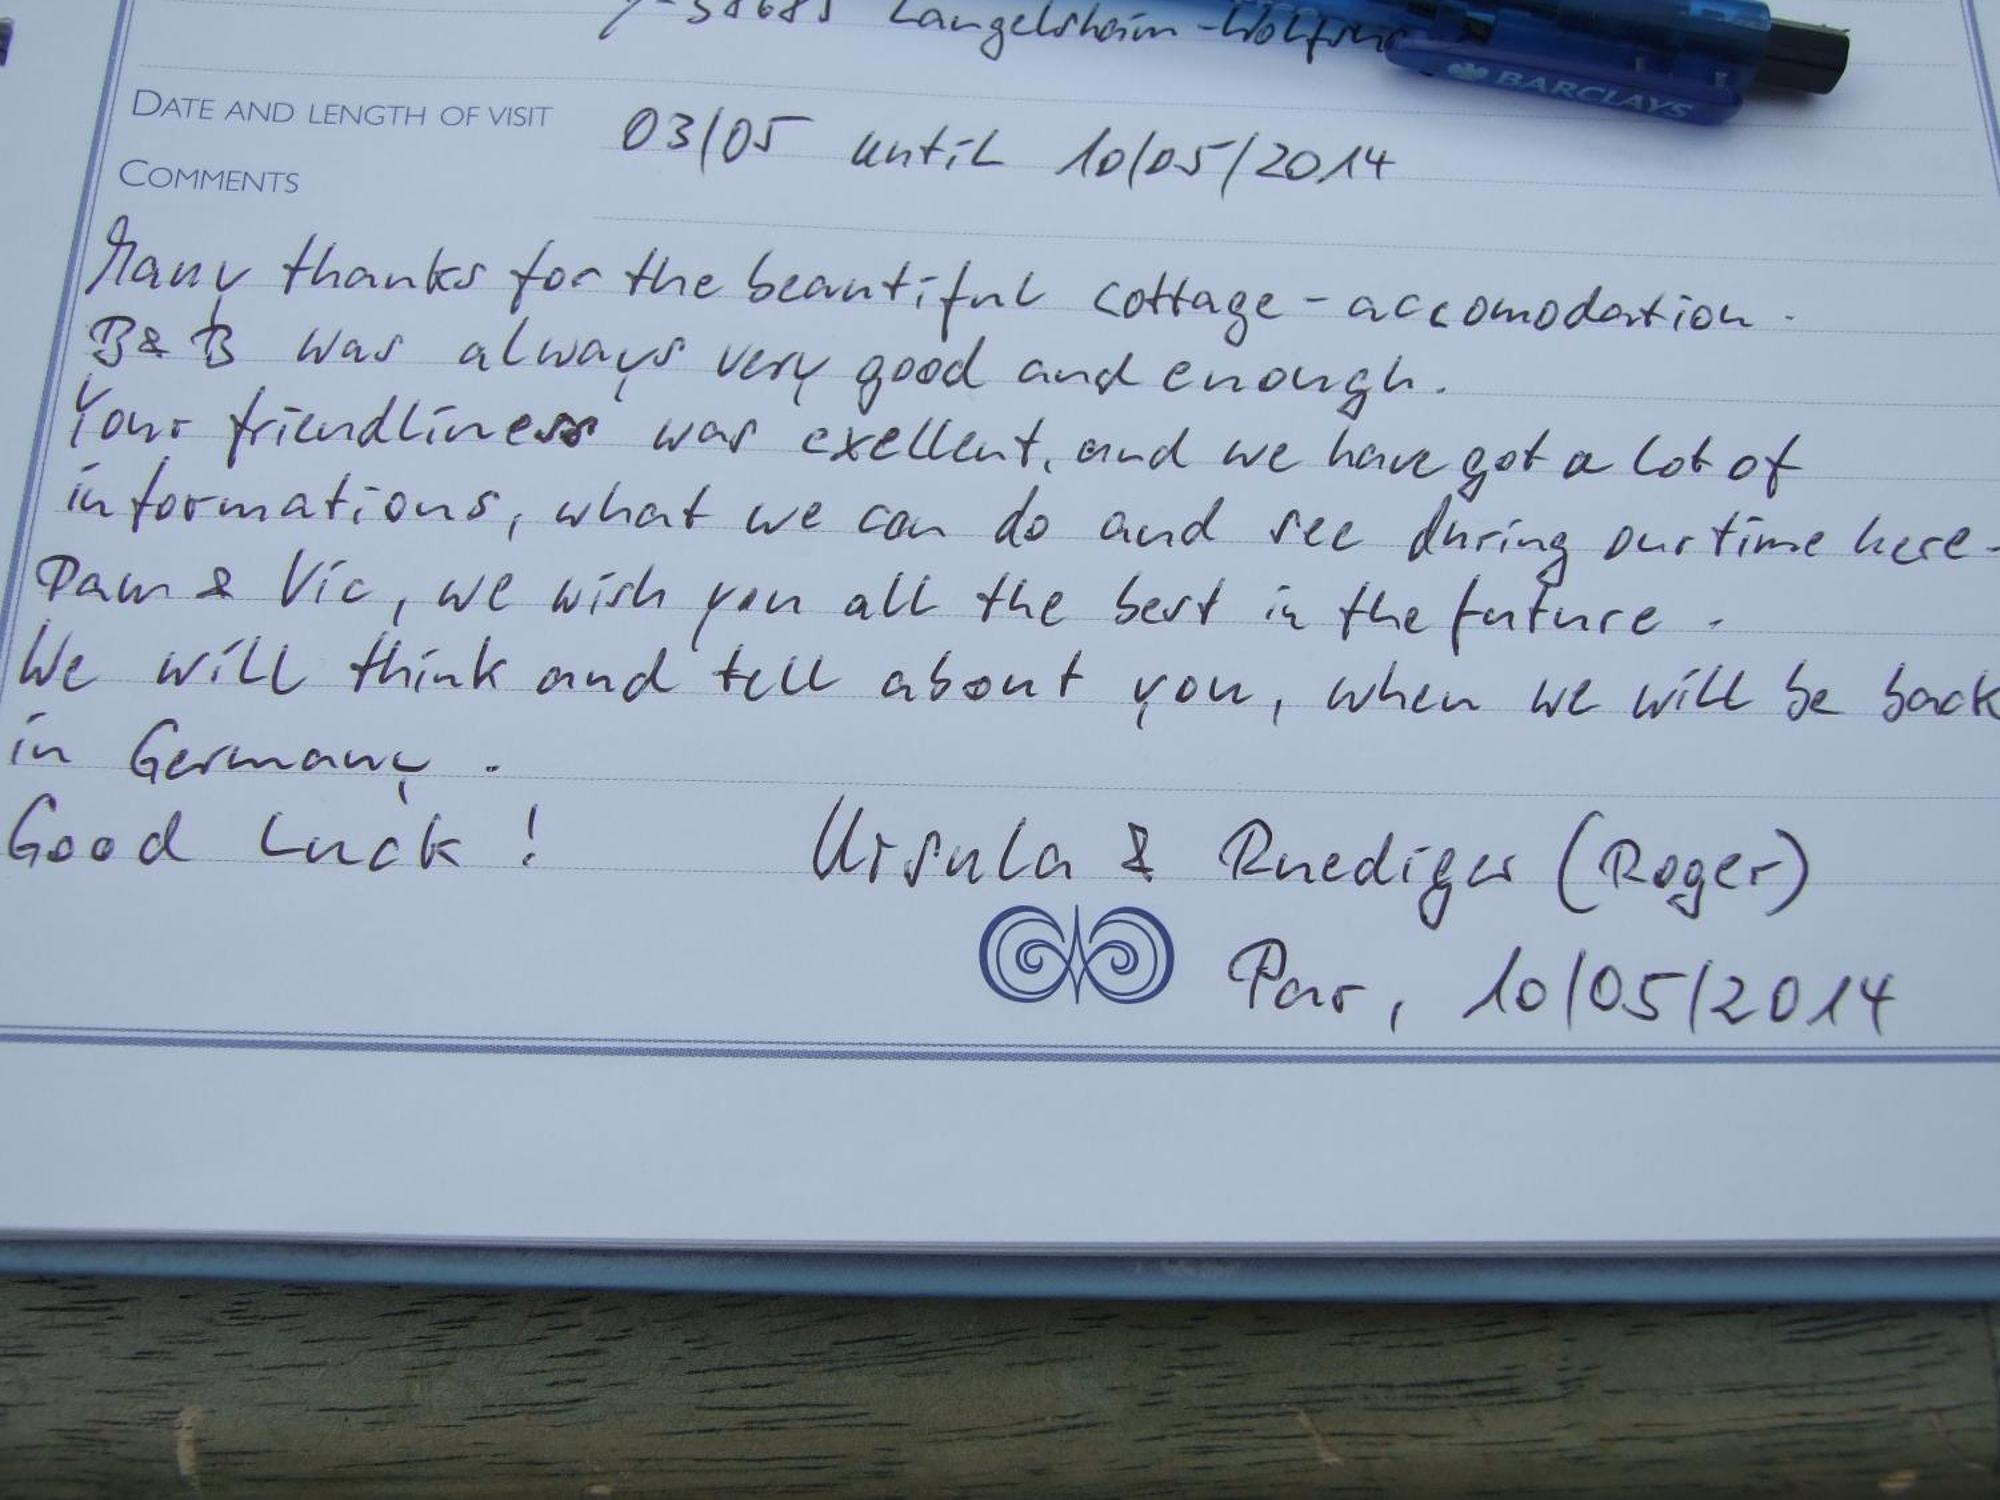 Langelsheim-Wolfsha
BARCLAYS
DATE AND LENGTH OF VISIT 03/05 until 10/05/2014
COMMENTS
Many thanks for the beautiful cottage-accomodation.
B&B was always very good and enough.
Your friendliness was exellent, and we have got a lot of
informations, what we can do and see during our time here.
Pam & Vic, we wish you all the best in the future.
We will think and tell about you, when we will be back
in Germany.
Good Luck! Ursula & Ruediger (Roger)
Par, 10/05/2014